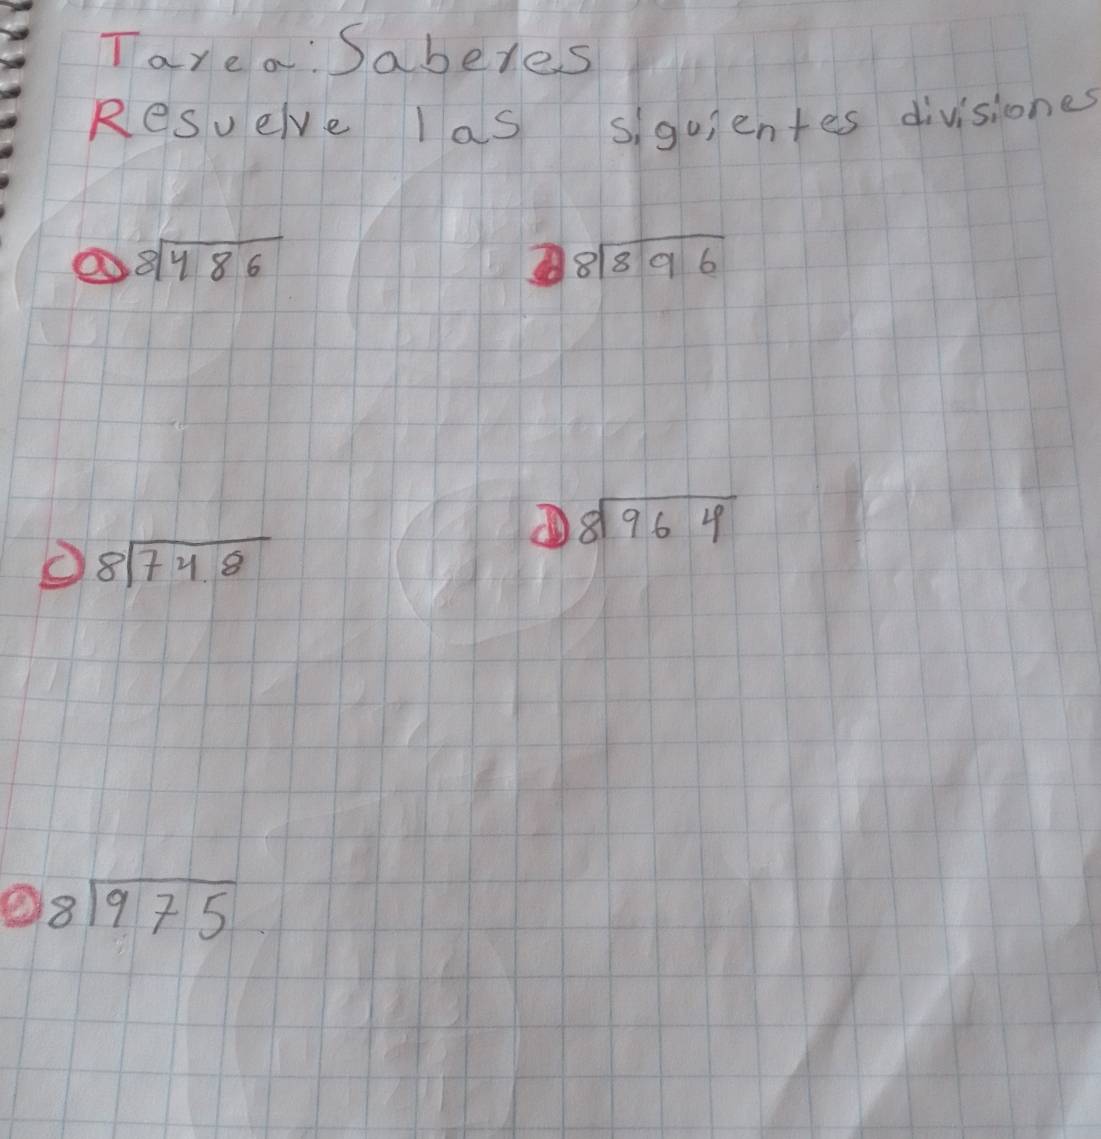 Tarea: Saberes
Resuelve las siguientes divisiones
a) 8|486
8|896
c) 8|748
d) 8|964
8|975